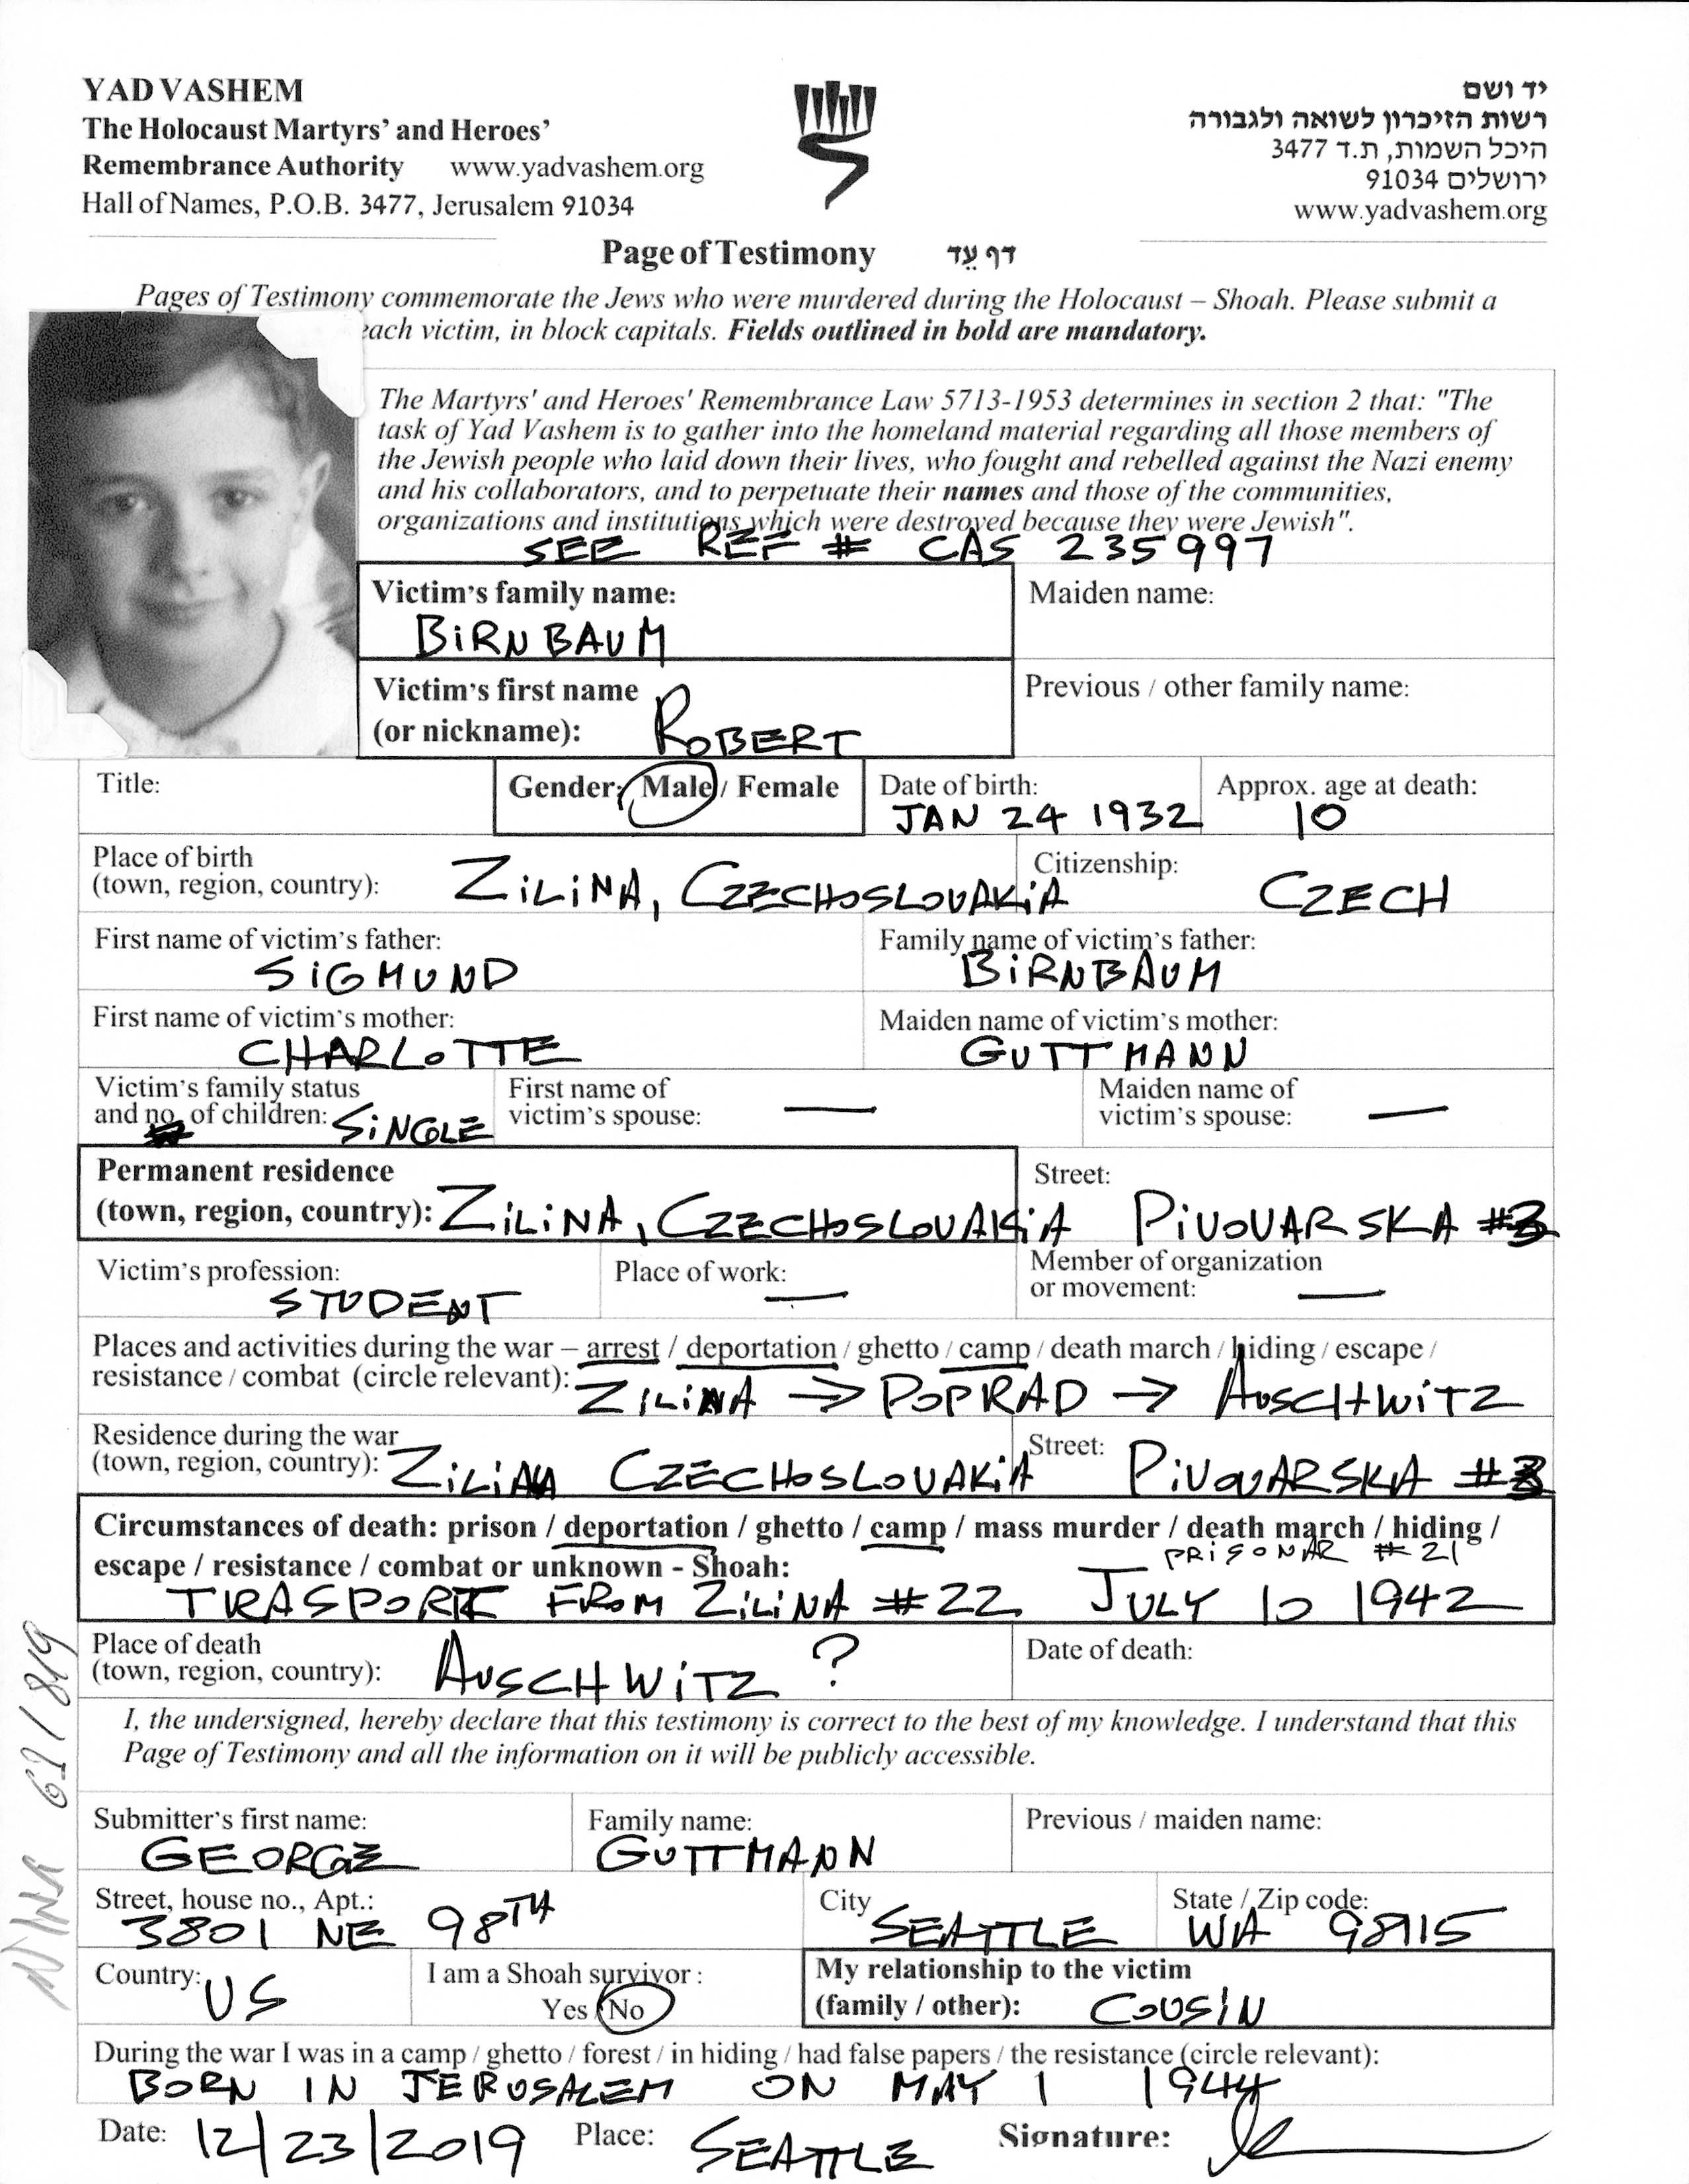 YAD VASHEM
The Holocaust Martyrs' and Heroes'
Remembrance Authority www.yadvashem.org
Hall of Names, P.O.B. 3477, Jerusalem 91034
יד ושם
רשות הזיכרון לשואה ולגבורה
היכל השמות, ת.ד 3477
ירושלים 91034
www.yadvashem.org
Page of Testimony דף עֵד
Pages of Testimony commemorate the Jews who were murdered during the Holocaust – Shoah. Please submit a
each victim, in block capitals. Fields outlined in bold are mandatory.
The Martyrs' and Heroes' Remembrance Law 5713-1953 determines in section 2 that: "The
task of Yad Vashem is to gather into the homeland material regarding all those members of
the Jewish people who laid down their lives, who fought and rebelled against the Nazi enemy
and his collaborators, and to perpetuate their names and those of the communities,
organizations and institutions which were destroyed because they were Jewish".
SEE REF # CAS 235997
Victim's family name: Maiden name:
BIRNBAUM
Victim's first name Previous / other family name:
(or nickname): ROBERT
Title: Gender: Male / Female Date of birth: Approx. age at death:
JAN 24 1932 10
Place of birth Citizenship:
(town, region, country): ZILINA, CZECHOSLOVAKIA CZECH
First name of victim's father: Family name of victim's father:
SIGMUND BIRNBAUM
First name of victim's mother: Maiden name of victim's mother:
CHARLOTTE GUTTMANN
Victim's family status First name of Maiden name of
and no. of children: SINGLE victim's spouse: — victim's spouse: —
Permanent residence Street:
(town, region, country): ZILINA, CZECHOSLOVAKIA PIVOVARSKA #3
Victim's profession: Place of work: Member of organization
STUDENT — or movement: —
Places and activities during the war – arrest / deportation / ghetto / camp / death march / hiding / escape /
resistance / combat (circle relevant): ZILINA → POPRAD → AUSCHWITZ
Residence during the war Street:
(town, region, country): ZILINA CZECHOSLOVAKIA PIVOVARSKA #3
Circumstances of death: prison / deportation / ghetto / camp / mass murder / death march / hiding /
escape / resistance / combat or unknown - Shoah: PRISONAR #21
TRASPORT FROM ZILINA #22 JULY 10 1942
Place of death Date of death:
(town, region, country): AUSCHWITZ ?
I, the undersigned, hereby declare that this testimony is correct to the best of my knowledge. I understand that this
Page of Testimony and all the information on it will be publicly accessible.
Submitter's first name: Family name: Previous / maiden name:
GEORGE GUTTMANN
Street, house no., Apt.: City State / Zip code:
3801 NE 98TH SEATTLE WA 98115
Country: US I am a Shoah survivor : My relationship to the victim
Yes / No (family / other): COUSIN
During the war I was in a camp / ghetto / forest / in hiding / had false papers / the resistance (circle relevant):
BORN IN JERUSALEM ON MAY 1 1944
Date: 12/23/2019 Place: SEATTLE Signature: